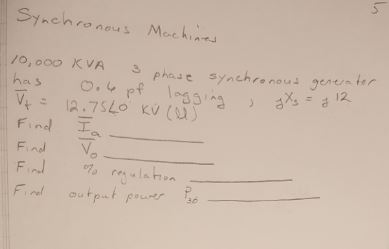 5
Synchronous Machines
10,000 KVA 3 phase synchronous generator
has 0.6 pf lagging, jXs = j12
V̅t = 12.75∠0 KV (ll)
Find I̅a
Find V̅o
Find % regulation
Find output power P3ø